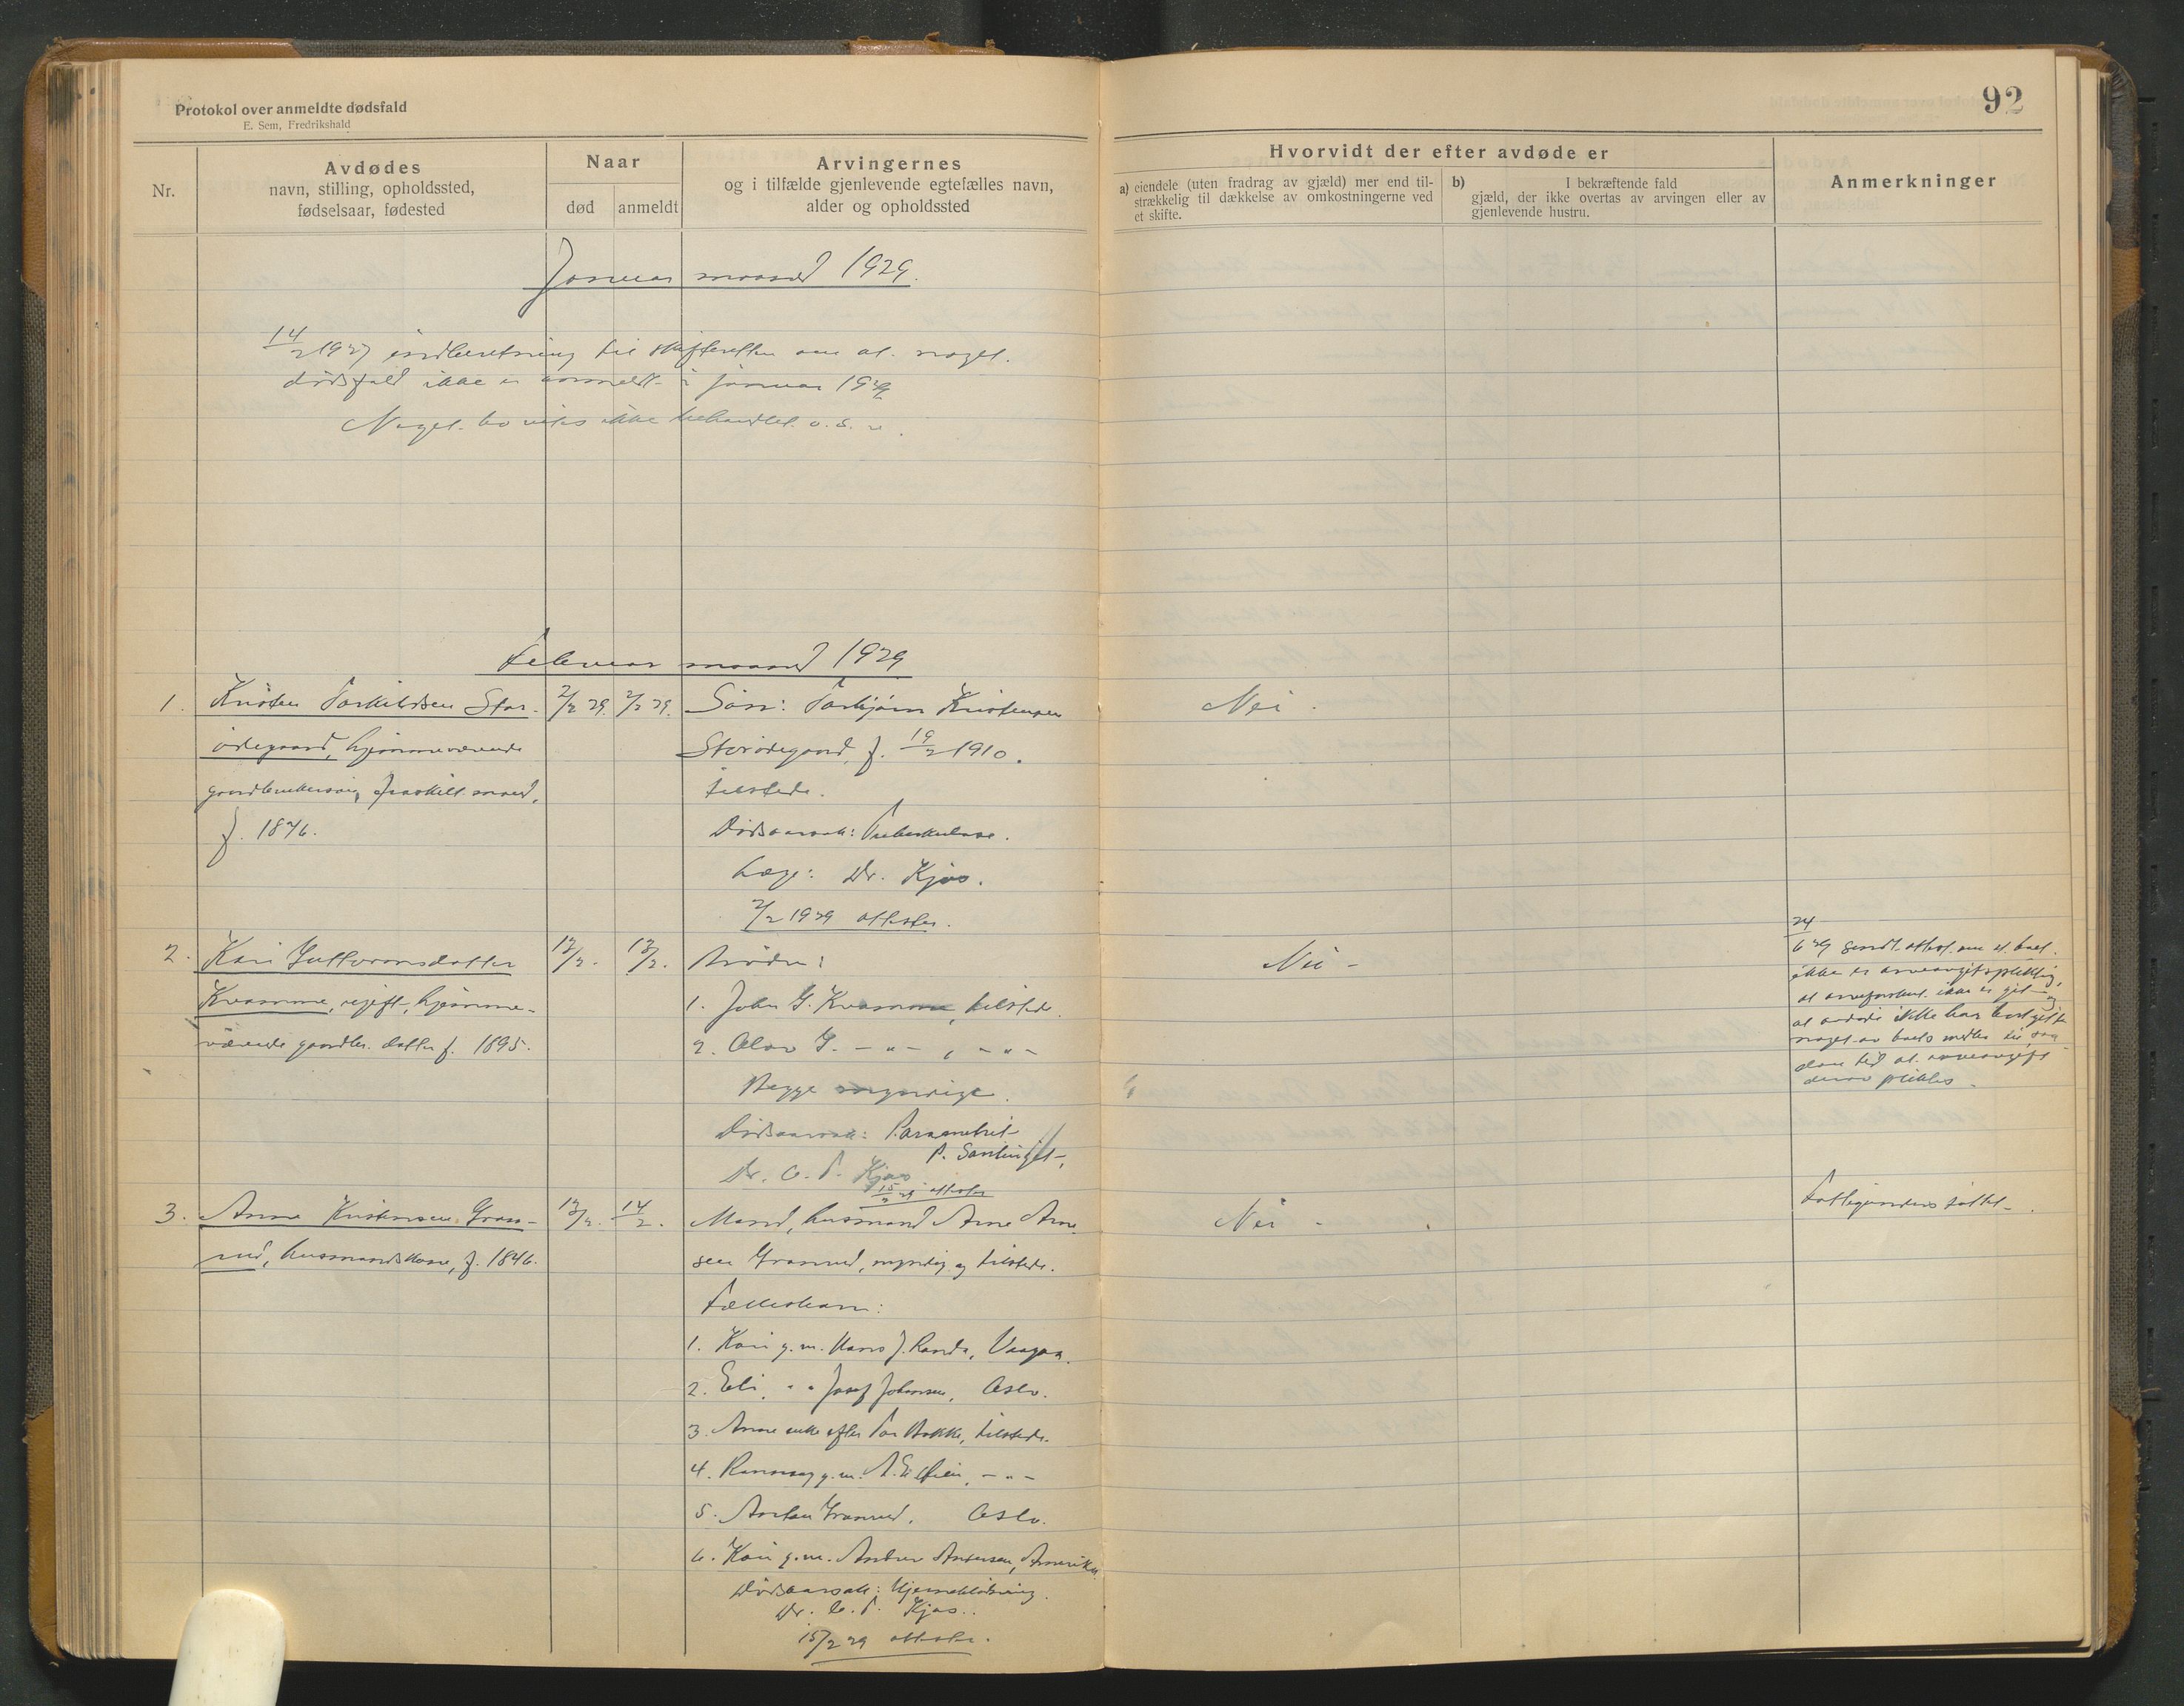 Protokol over anmeldte dødsfald
E. Sem, Fredrikshald
92
Nr.
Avdødes
navn, stilling, opholdssted,
fødselsaar, fødested
Naar
død
anmeldt
Arvingernes
og i tilfælde gjenlevende egtefælles navn,
alder og opholdssted
Hvorvidt der efter avdøde er
a) eiendele (uten fradrag av gjæld) mer end til-
strækkelig til dækkelse av omkostningerne ved
et skifte.
b) I bekræftende fald
gjæld, der ikke overtas av arvingen eller av
gjenlevende hustru.
Anmerkninger
Januar maaned 1929.
14/2 1929 indberetning til skifteretten om at noget
dødsfald ikke er anmeldt i januar 1929
Noget bo vites ikke behandlet o. s. v.
Februar maaned 1929
1.
Kristen Torkildsen Stor-
ødegaard, hjemmeværende
gaardbrukersøn, fraskilt mand,
f. 1876.
2/2 29.
2/2 29.
Søn: Torbjørn Kristensen
Storødegaard, f. 19/2 1910.
tilstede.
Dødsaarsak: Tuberkulose.
Læge: Dr. Kjos.
2/2 1929 attester.
Nei.
2.
Kari Guttormsdatter
Kvamme, ugift, hjemme-
værende gaardbr. datter f. 1895.
13/2.
13/2.
Brødre:
1. John G. Kvamme, tilstede.
2. Olav G. - " - , - " -
Begge myndige.
Dødsaarsak: Parametrit
Dr. O. T. Kjos
15/2 29 attester
Nei -
24/6 29 sendt attest om at boet
ikke er arveavgiftspliktig,
at arveforskud ikke er git og
at avdøde ikke har bortgit
noget av boets midler til saa-
dan tid at arveavgift
derav pliktes.
3.
Anne Kristensen Gran-
rud, husmandskone, f. 1846.
13/2.
14/2.
Mand, husmand Arne Arne-
sen Granrud, myndig og tilstede.
Fællesbarn:
1. Kari g. m. Hans J. Randa, Vaagaa.
2. Eli, " " Josef Johansen, Oslo.
3. Anne enke efter Tor Bakke, tilstede.
4. Rannveg g. m. - " -
5. Anton Granrud, Oslo.
6. Kari g. m. Andrew Andersen, Amerika.
Dødsaarsak: Hjerneblødning.
Dr. O. T. Kjos.
15/2 29 attester.
Nei -
Fattigunderstøttet.